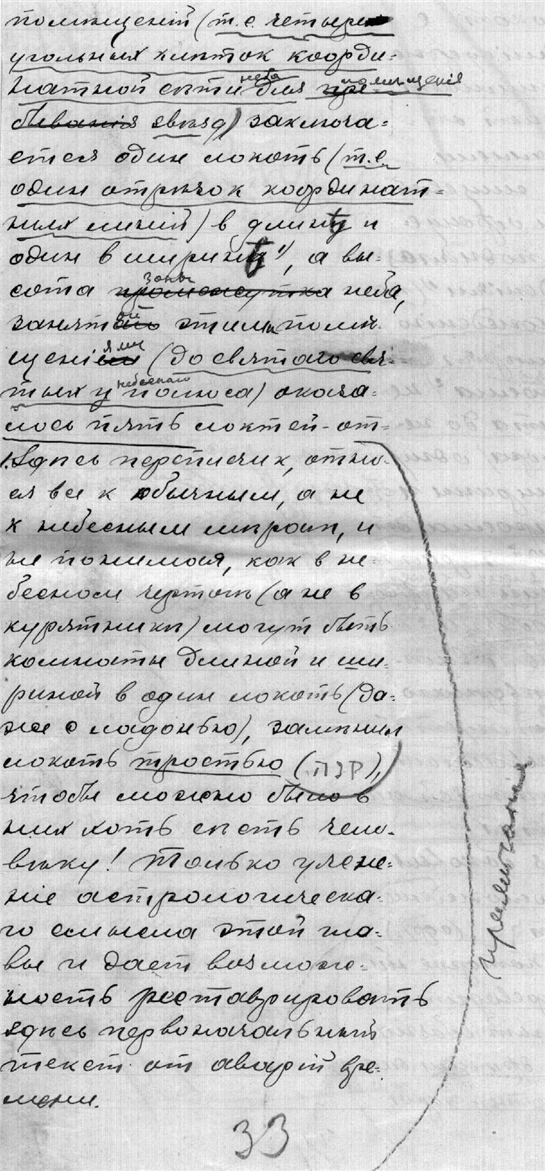 помѣщеній (т.е. четыре-
угольных клѣток коорди-
натной сѣти неба для помѣщенія
быванія звѣзд) заключа-
ется один локоть (т.е.
один отрѣзок координат-
ных линій) в длину и
один в ширину¹⁾, а вы-
сота зоны промежутка неба,
занятой этими помѣ-
щеніями (до святаго свя-
тых у небеснаго полюса) оказа-
лось пять локтей - от-
1. Здѣсь переписчик, отно-
ся все к обычным, а не
к небесным мѣрам, и
не понимая, как в не-
бесном чертогѣ (а не в
курятникѣ) могут быть
комнаты длиной и ши-
риной в один локоть (да-
же с ладонью), замѣнил
локоть тростью (ПЗР),
чтобы можно было в
них хоть сѣсть чело-
вѣку! Только уясне-
ніе астрологическа-
го смысла этой гла-
вы и дает возмож-
ность реставрировать
здѣсь первоначальный
текст от аварій вре-
мени.
примѣчанія
33